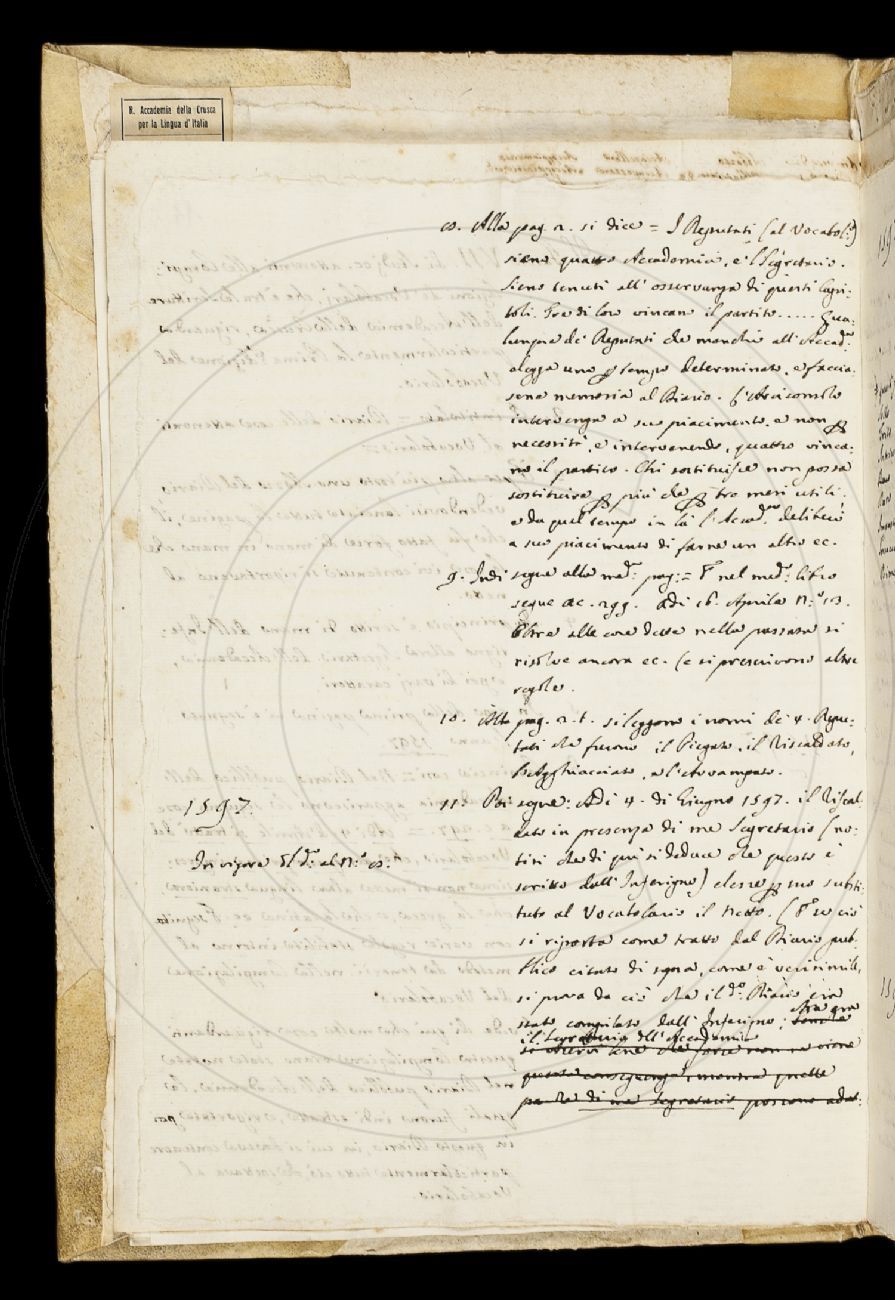 R. Accademia della Crusca
per la Lingua d'Italia
8. Alla pag. 2. si dice = I Deputati (al Vocabol.º)
siano quattro Accademici, e l'Segretario.
Sieno tenuti all'osservanza di questi Capi-
toli. Tra di loro vincasi il partito ..... Qua-
lunque de' Deputati che manchi all'Accad.ª
elegga uno p tempo determinato, e faccia-
sene memoria al Diario. L'Arciconsolo
intervenga a suo piacimento, e non p
necessità, e intervenendo, quattro vinca-
no il partito. Chi sostituisce non possa
sostituire p più che p tre mesi utili:
e da quel tempo in là l'Accad.ª deliberi
a suo piacimento di farne un altro ec.
9. Indi segue alla med.ª pag: = E nel med.º libro
segue a c. 299. Adi 16. Aprile N.º 103.
Oltre alle cose dette nella passata si
risolve ancora ec. (e si prescrivono altre
regole.
10. Alla pag. 2. t. si leggono i nomi de' 4. Depu-
tati che furono il Piegato, il Riscaldato,
l'Agghiacciato, e l'Avvampato.
1597.
In vigore del d.º al N.º 8.
11. Poi segue: Adi 4. di Giugno 1597. il Riscal-
dato in presenza di me Segretario (no-
tisi che di più si deduce che questo è
scritto dall'Inferigno) elesse p suo susti-
tuto al Vocabolario il Netto. (E se ciò
si riporta come tratto dal Diario pub-
blico citato di sopra, come è verisimile,
si prova da ciò che il d.º Diario era
stato compilato dall'Inferigno, che era
il Segretario dell'Accademia
si osservi bene che forse non ne viene
questa conseguenza, mentre quelle
parole di me Segretario possono adat-